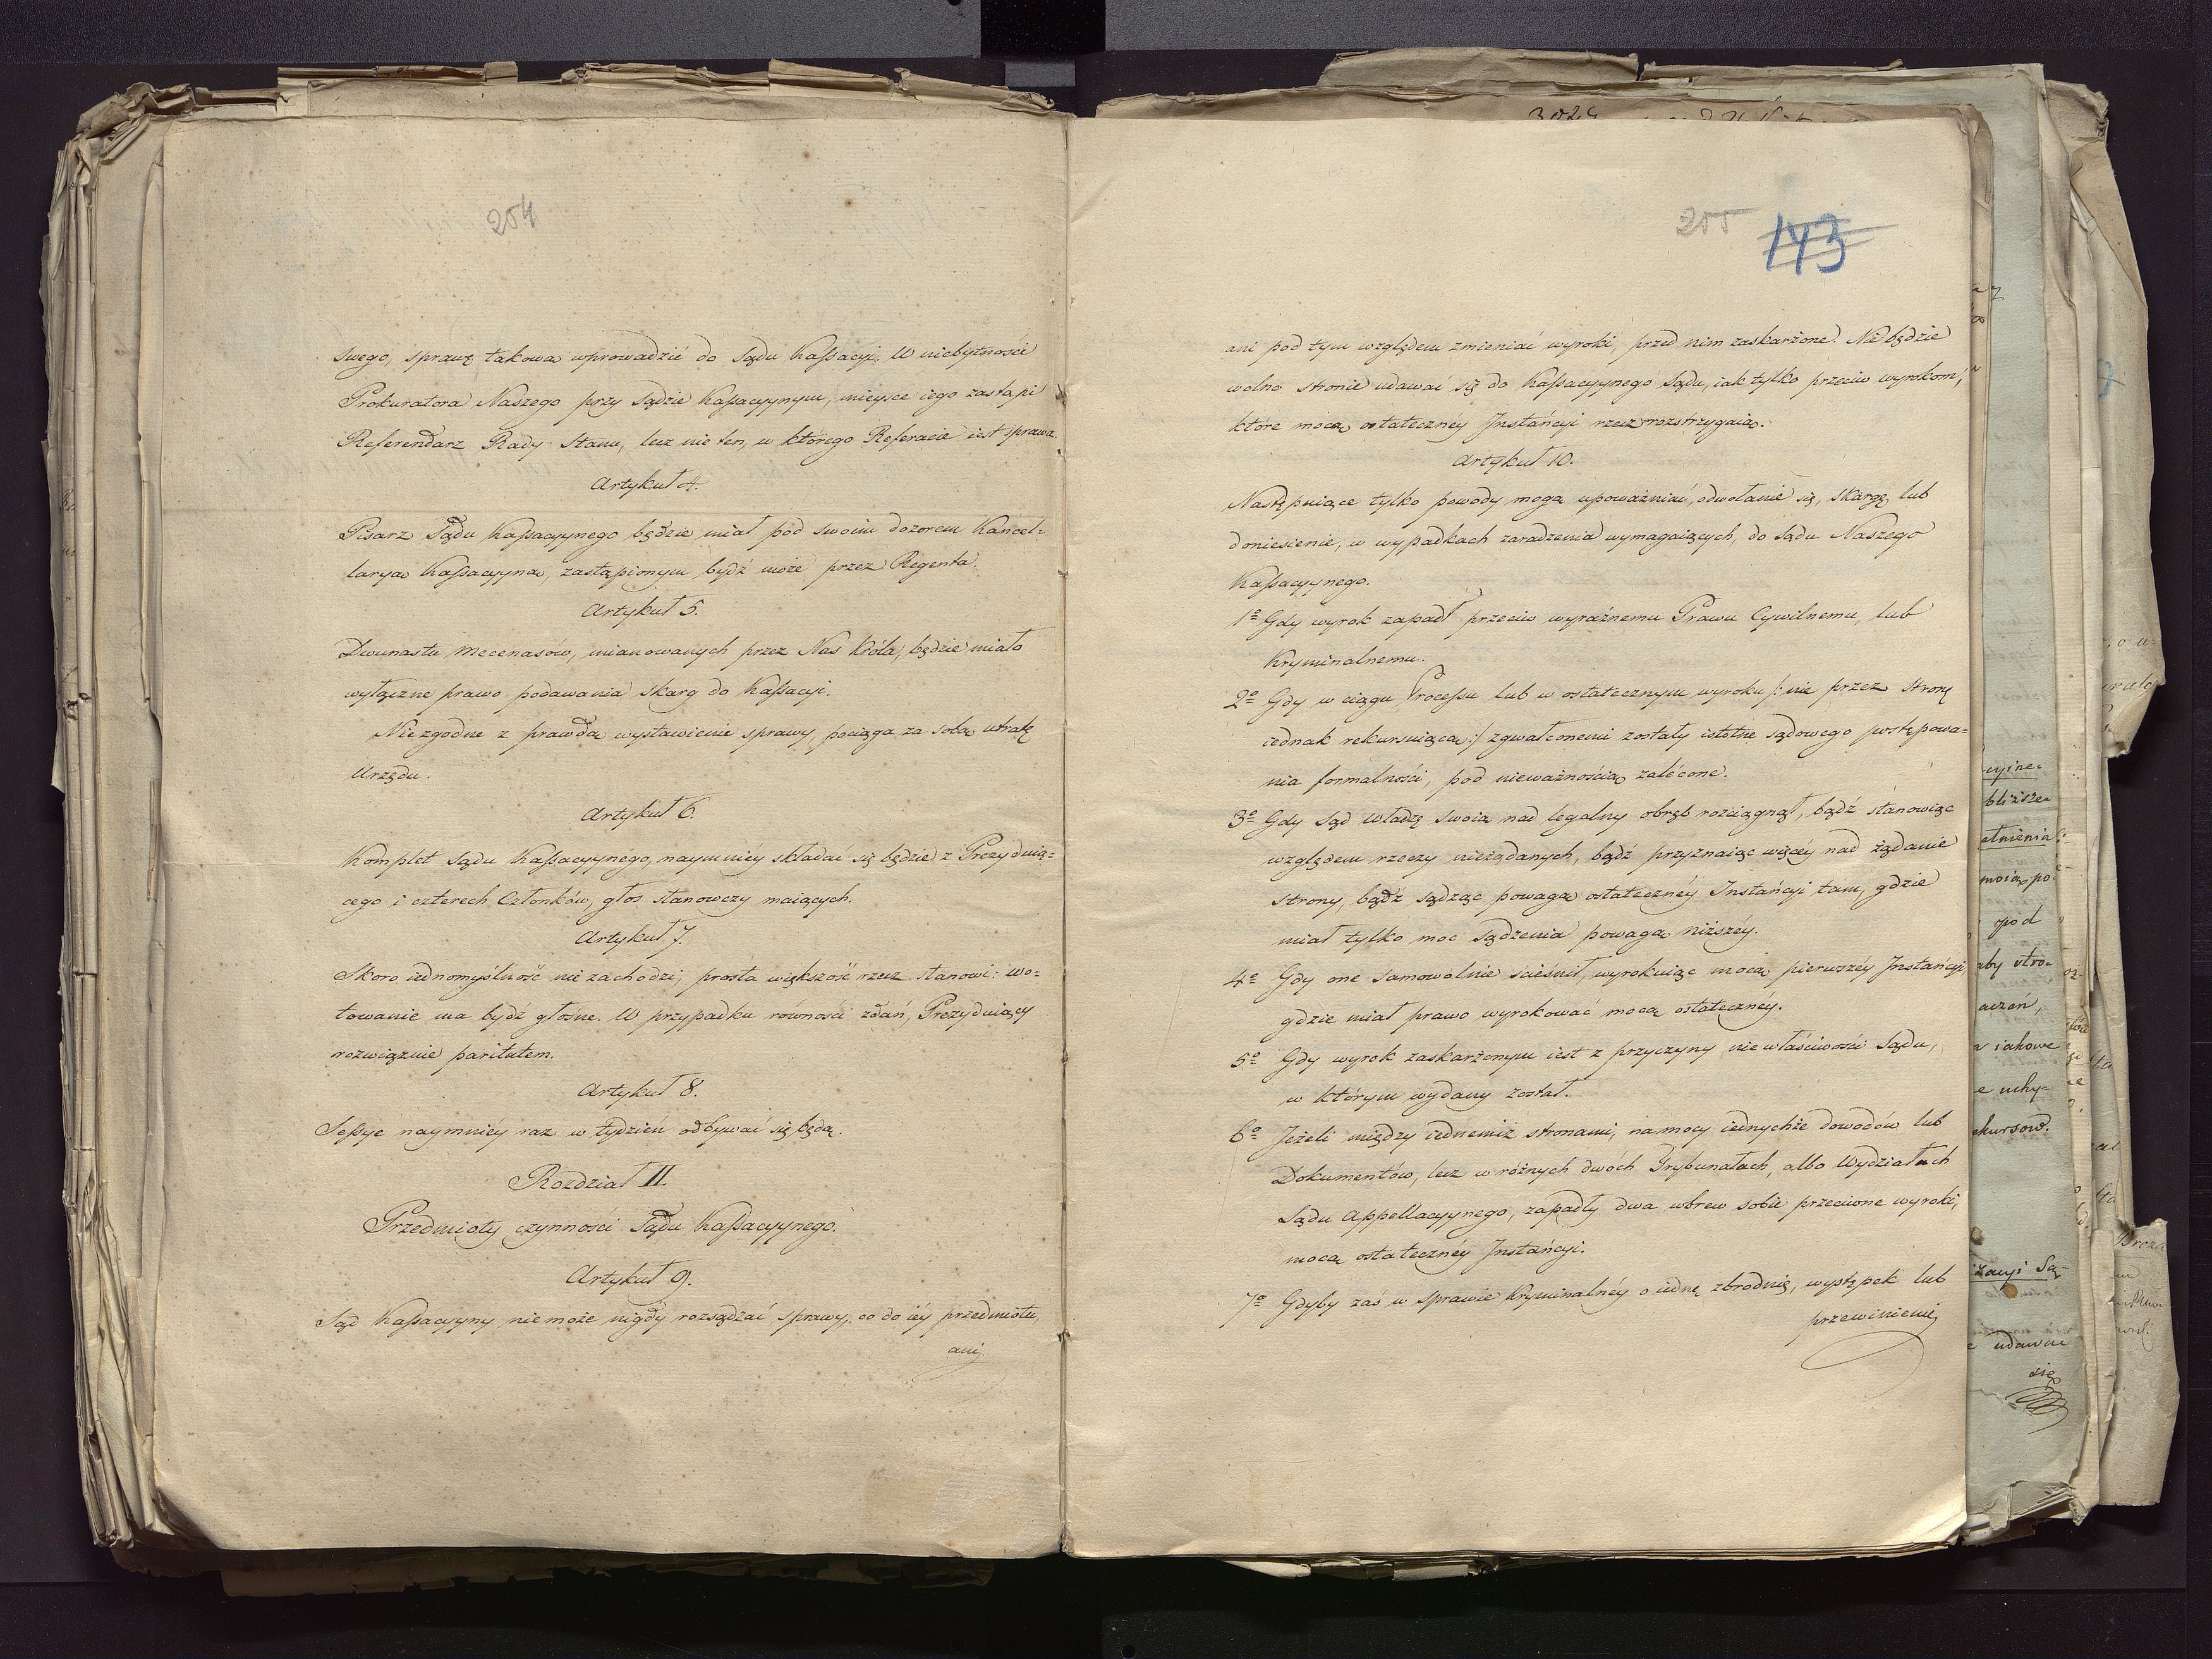 204
swego, sprawę takową wprowadzić do Sądu Kassacyi. W niebytności
Prokuratora Naszego przy Sądzie Kassacyynym, mieysce iego zastąpi
Referendarz Rady Stanu, lecz nie ten, w którego Referacie iest sprawa.
Artykuł 4.
Pisarz Sądu Kassacyynego będzie miał pod swoim dozorem Kancel=
laryą Kassacyyną, zastąpionym bydź może przez Regenta.
Artykuł 5.
Dwunastu Mecenasów, mianowanych przez Nas Króla, będzie miało
wyłączne prawo podawania skarg do Kassacyi.
Niezgodne z prawdą wystawienie sprawy, pociąga za sobą utratę
Urzędu.
Artykuł 6.
Komplet Sądu Kassacyynego, naymniéy składać się będzie z Prezyduią=
cego i czterech Członków, głos stanowczy maiących.
Artykuł 7.
Skoro iednomyślność nie zachodzi, prosta większość rzecz stanowi: wo=
towanie ma bydź głośne. W przypadku równości zdań, Prezyduiący
rozwiązuie paritatem.
Artykuł 8.
Sessye naymniéy raz w tydzień odbywać się będą.
Rozdział II.
Przedmioty czynności Sądu Kassacyynego.
Artykuł 9.
Sąd Kassacyyny nie może nigdy rozsądzać sprawy, co do iéy przedmiotu,
ani
205 143
ani pod tym względem zmieniać wyroki, przed nim zaskarżone. Nie będzie
wolno stronie udawać się do Kassacyynego Sądu, iak tylko przeciw wyrokom,
które mocą ostatecznéy Instancyi rzecz rozstrzygaią.
Artykuł 10.
Następuiące tylko powody mogą upoważniać, odwołanie się, skargę, lub
doniesienie, w wypadkach zaradzenia wymagaiących, do Sądu Naszego
Kassacyynego.
1o Gdy wyrok zapadł przeciw wyraźnemu Prawu Cywilnemu, lub
Kryminalnemu.
2o Gdy w ciągu Processu lub w ostatecznym wyroku /: nie przez stronę
iednak rekursuiącą :/ zgwałconemi zostały istotne sądowego postępowa=
nia formalności, pod nieważnością zalécone.
3o Gdy Sąd władzę swoią nad legalny obręb rozciągnął, bądź stanowiąc
względem rzeczy nieżądanych, bądź przyznaiąc więcéy nad żądanie
strony, bądź sądząc powagą ostatecznéy Instancyi tam, gdzie
miał tylko moc sądzenia powagą niższéy.
4o Gdy one samowolnie ścieśnił, wyrokuiąc mocą pierwszéy Instancyi
gdzie miał prawo wyrokować mocą ostatecznéy.
5o Gdy wyrok zaskarżonym iest z przyczyny niewłaściwości Sądu,
w którym wydany został.
6o Jeżeli między iednemiż stronami, na mocy iednychże dowodów lub
Dokumentów, lecz w różnych dwóch Trybunałach, albo Wydziałach
Sądu Appellacyynego, zapadły dwa wbrew sobie przeciwne wyroki,
mocą ostatecznéy Instancyi.
7o Gdyby zaś w Sprawie Kryminalnéy o iednę zbrodnię, występek lub
przewinienie,
cyine=
bliższe=
moią po=
pod
aby stro=
iakowe
e uchy=
ekursow.
udawać
się